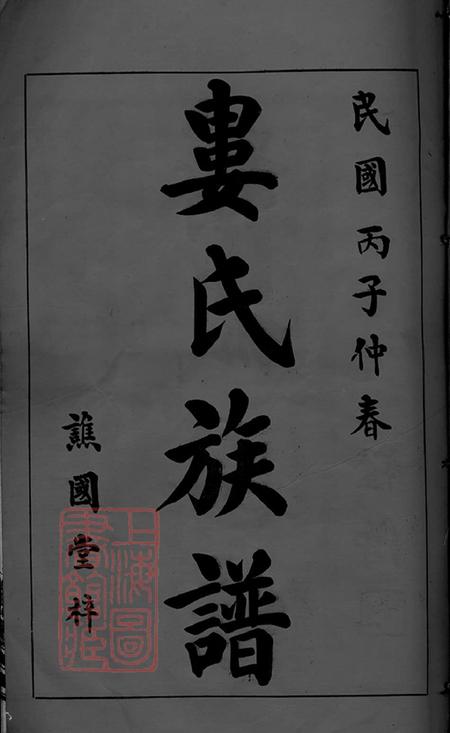 民國丙子仲春
婁氏族譜
譙國堂梓
上海圖書館藏